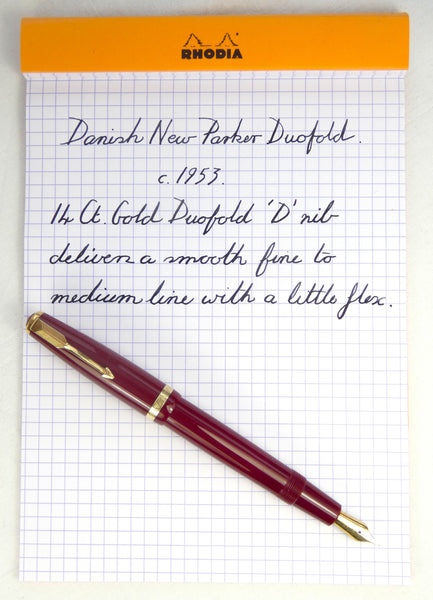 RHODIA
Danish New Parker Duofold.
c. 1953.
14 Ct. Gold Duofold 'D' nib
delivers a smooth fine to
medium line with a little flex.